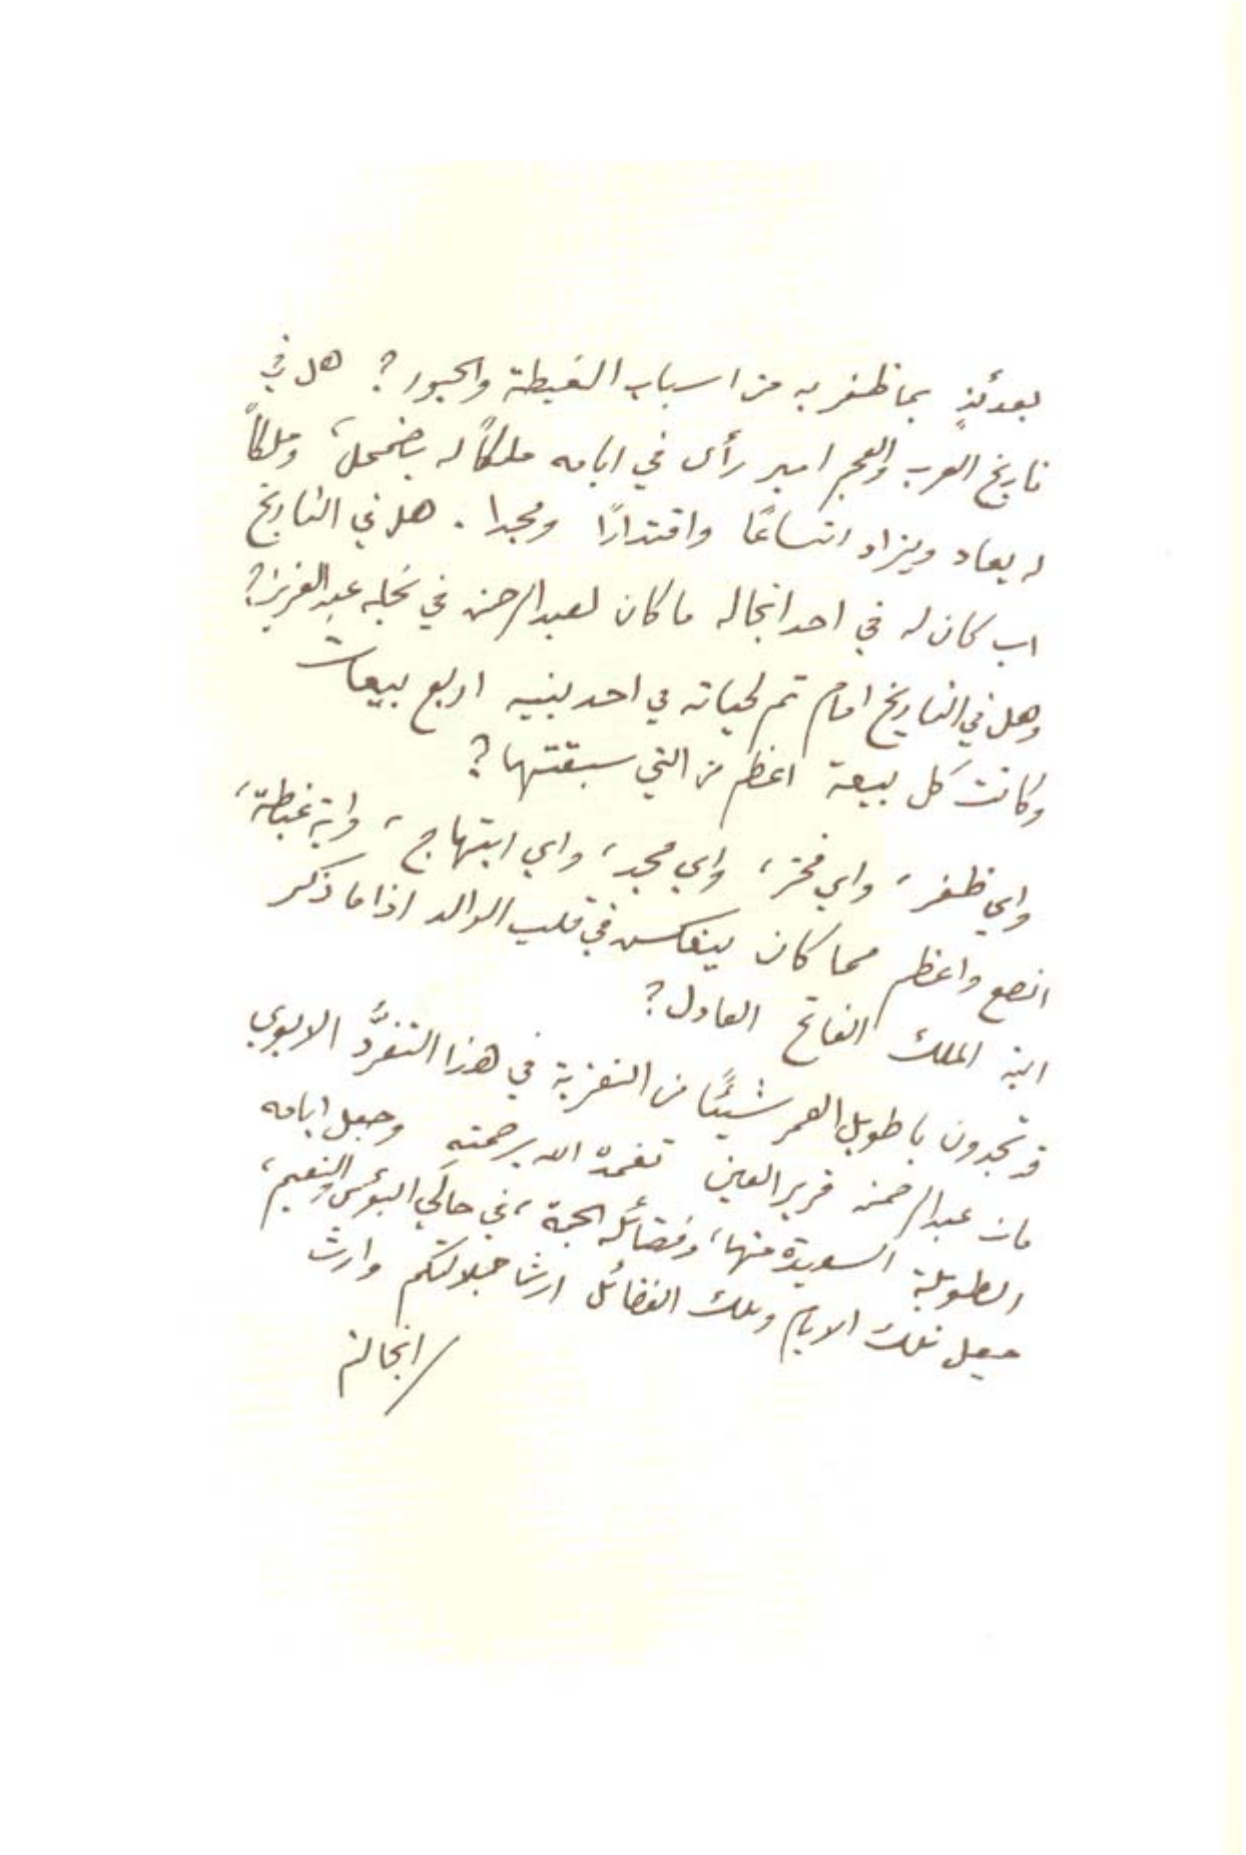 بعدئذٍ بما ظفر به من اسباب الغبطة والحبور؟ هل في
تاريخ العرب والعجم امير رأى في ايامه ملكاً له يضمحل، وملكاً
له يعاد ويزاد اتساعًا واقتدارًا ومجدا. هل في التاريخ
اب كان له في احد انجاله ما كان لعبدالرحمن في نجله عبدالعزيز؟
وهل في التاريخ امام تم لحياته في احد بنيه اربع بيعات
وكانت كل بيعة اعظم من التي سبقتها؟
واي ظفر، واي فخر، واي مجد، واي ابتهاج، واية غبطة،
انصع واعظم مما كان ينعكس في قلب الوالد اذا ما ذكر
ابنه الملك الفاتح العادل؟
قد تجدون يا طويل العمر شيئًا من التعزية في هذا التفرُّد الابوي
مات عبدالرحمن قرير العين تغمده الله برحمته وجعل ايامه
الطويلة السعيدة منها، وفضائله الجمة، في حالَي البؤس والنعيم،
جعل تلك الايام وتلك الفضائل ارث جلالتكم وارث
انجالكم